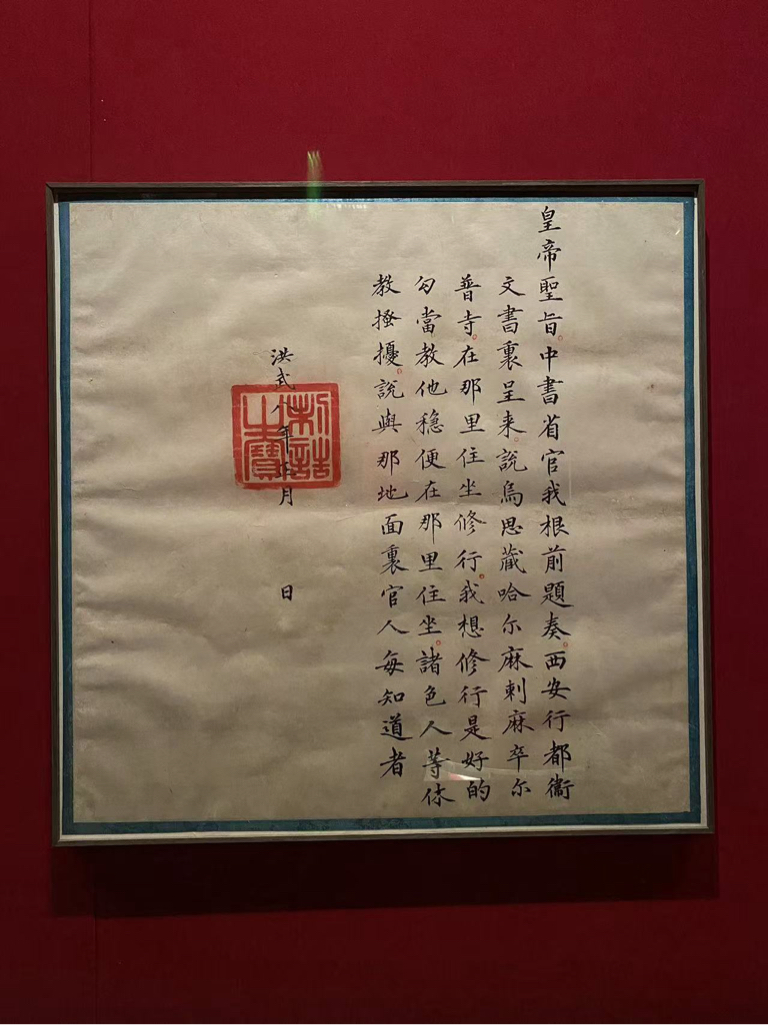 皇帝聖旨中書省官我根前題奏西安行都衞
文書裏呈来說烏思藏哈尔麻剌麻卒尔
普寺在那里住坐修行我想修行是好的
勾當教他穏便在那里住坐諸色人等休
教搔擾說與那地面裏官人每知道者
洪武八年正月
日
制誥之寶